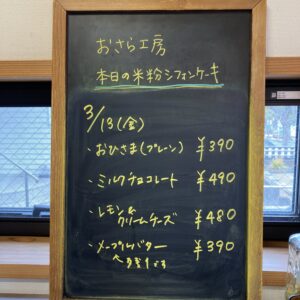 おさら工房
本日の米粉シフォンケーキ
3/13(金)
・おひさま(プレーン) ¥390
・ミルクチョコレート ¥490
・レモン&
クリームチーズ ¥480
・メープルバター ¥390